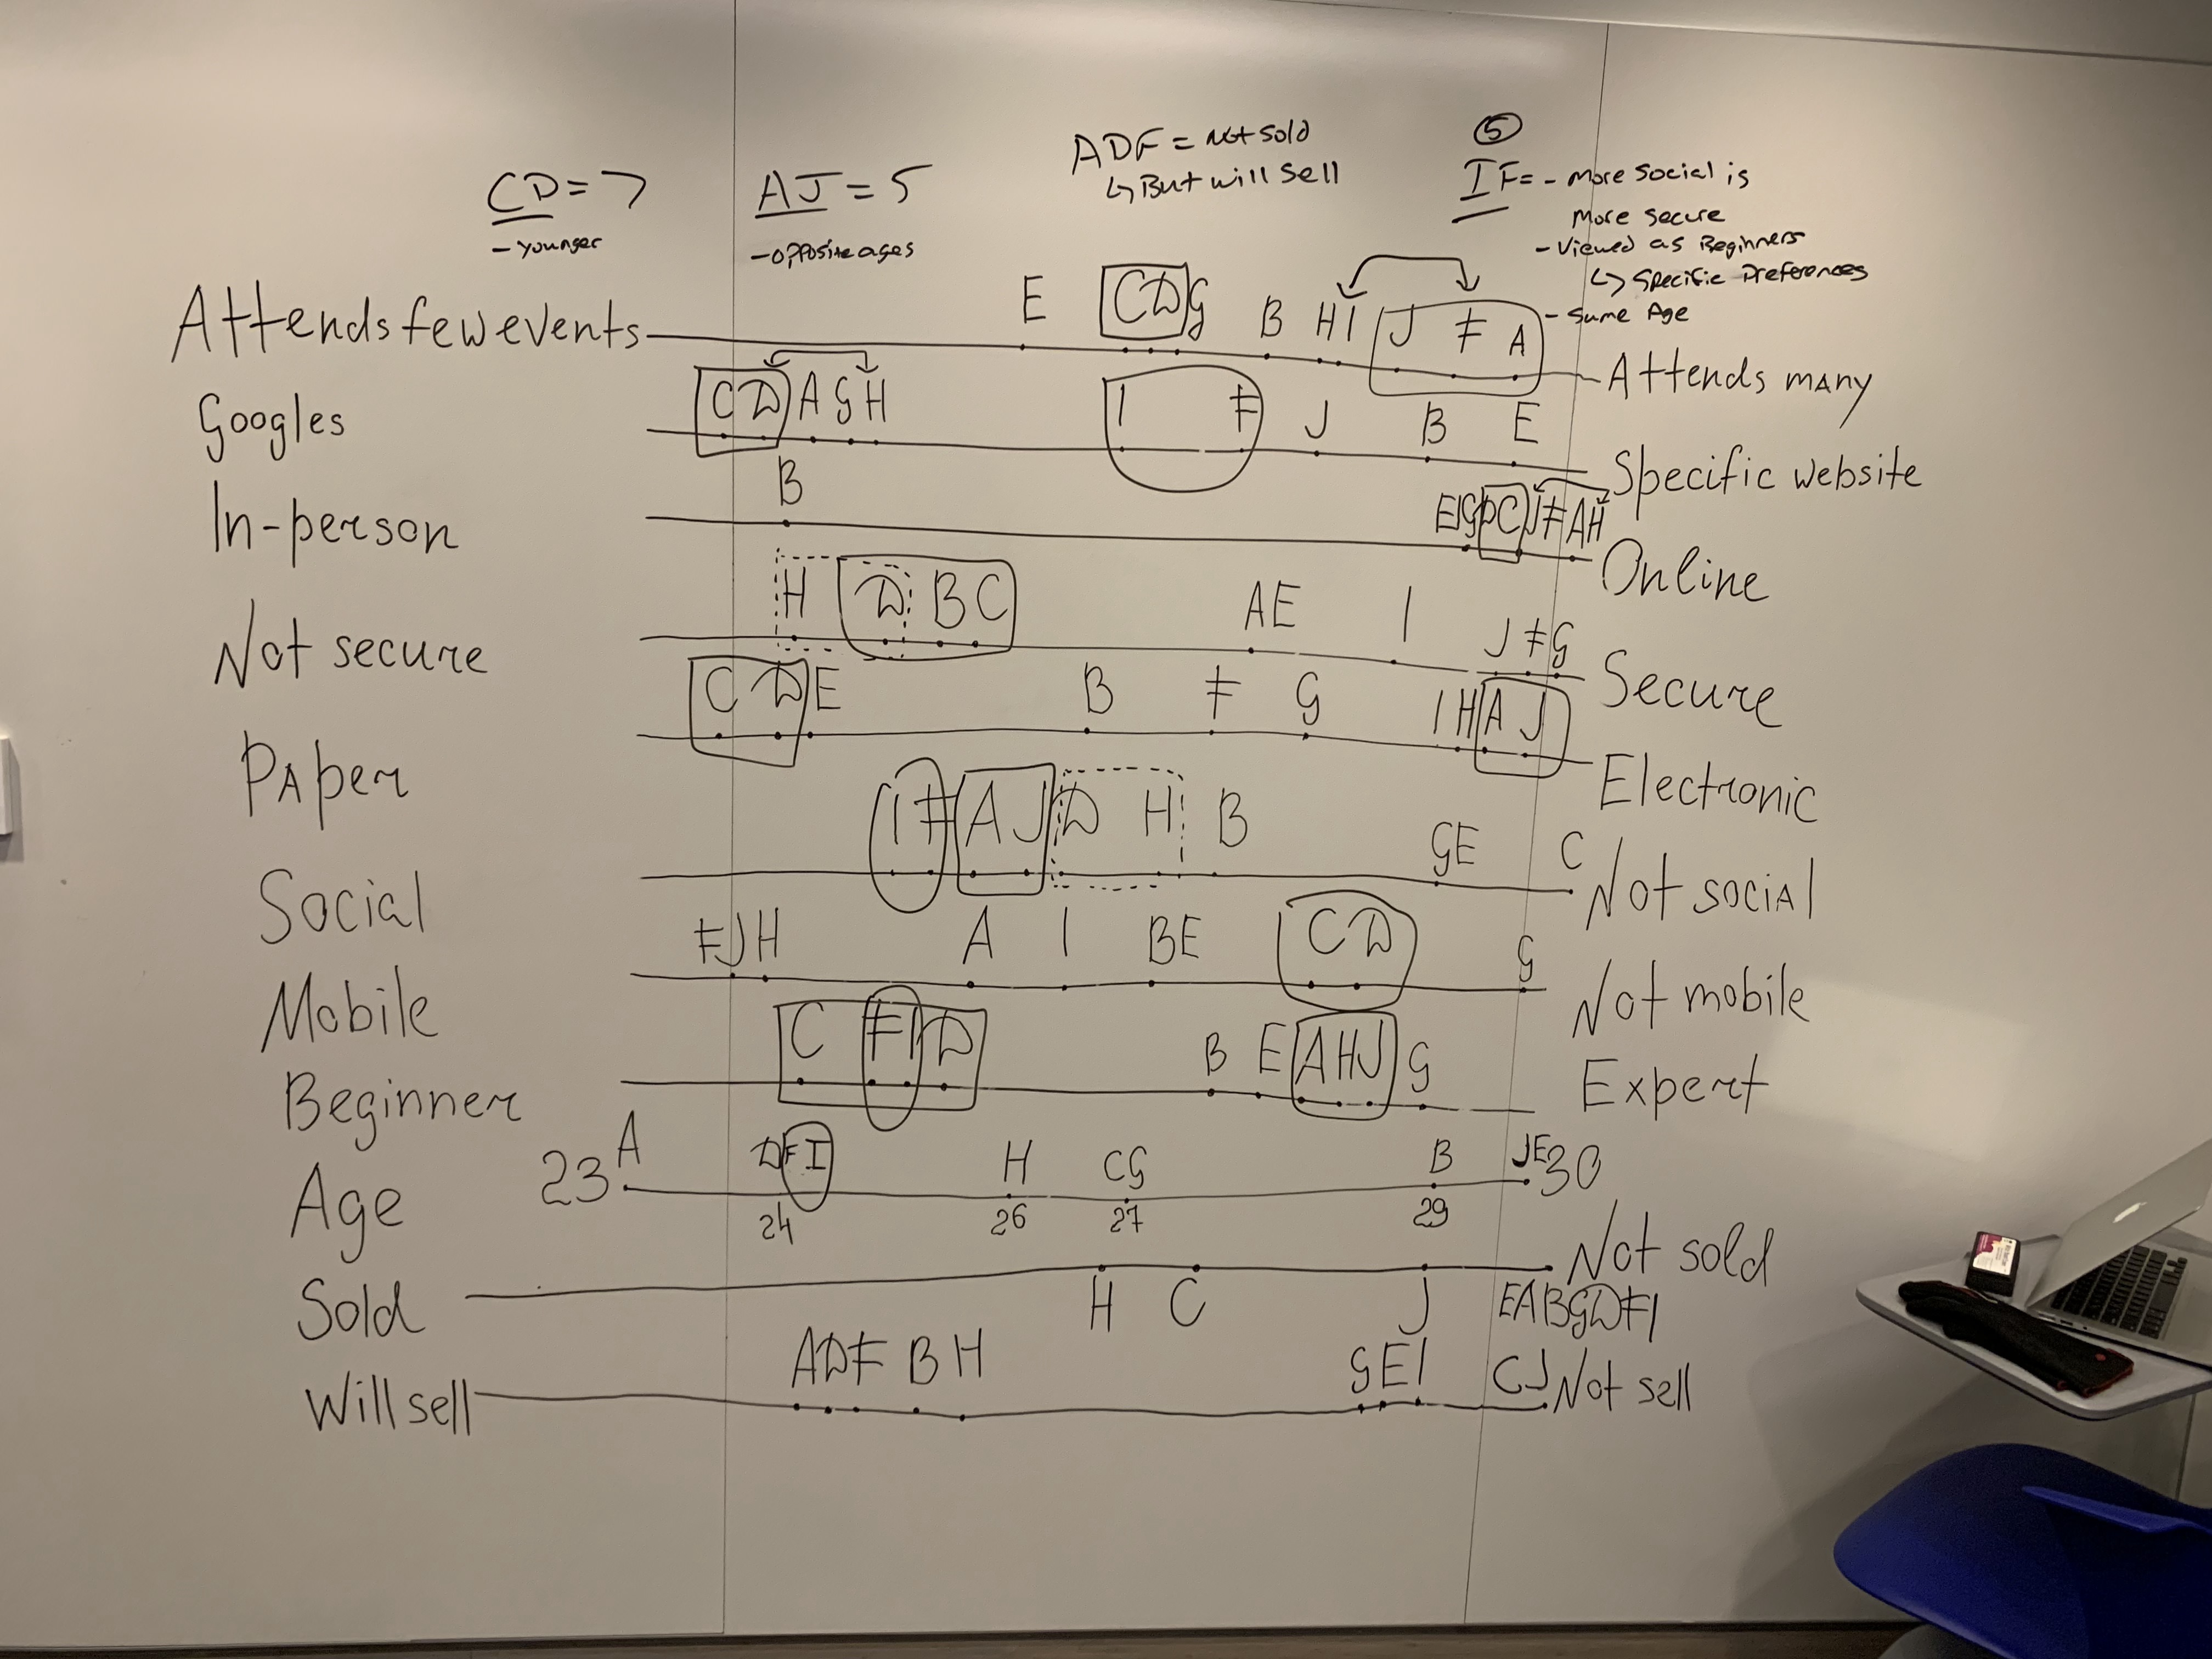 CD = 7
- younger
AJ = 5
- opposite ages
ADF = Not sold
↳ But will sell
5
IF = - more social is
more secure
- Viewed as Beginners
↳ Specific Preferences
- Same Age
Attends few events E CD G B H I J F A Attends many
Googles C D A G H I F J B E Specific website
In-person B E I G D C J F A H Online
Not secure H D B C A E I J F G Secure
Paper C D E B F G I H A J Electronic
Social I F A J D H B G E C Not social
Mobile F J H A I B E C D G Not mobile
Beginner C F I D B E A H J G Expert
Age 23 A D F I H C G B J E 30
24 26 27 29
Sold H C J E A B G D F I Not sold
Will sell A D F B H G E I C J Not sell